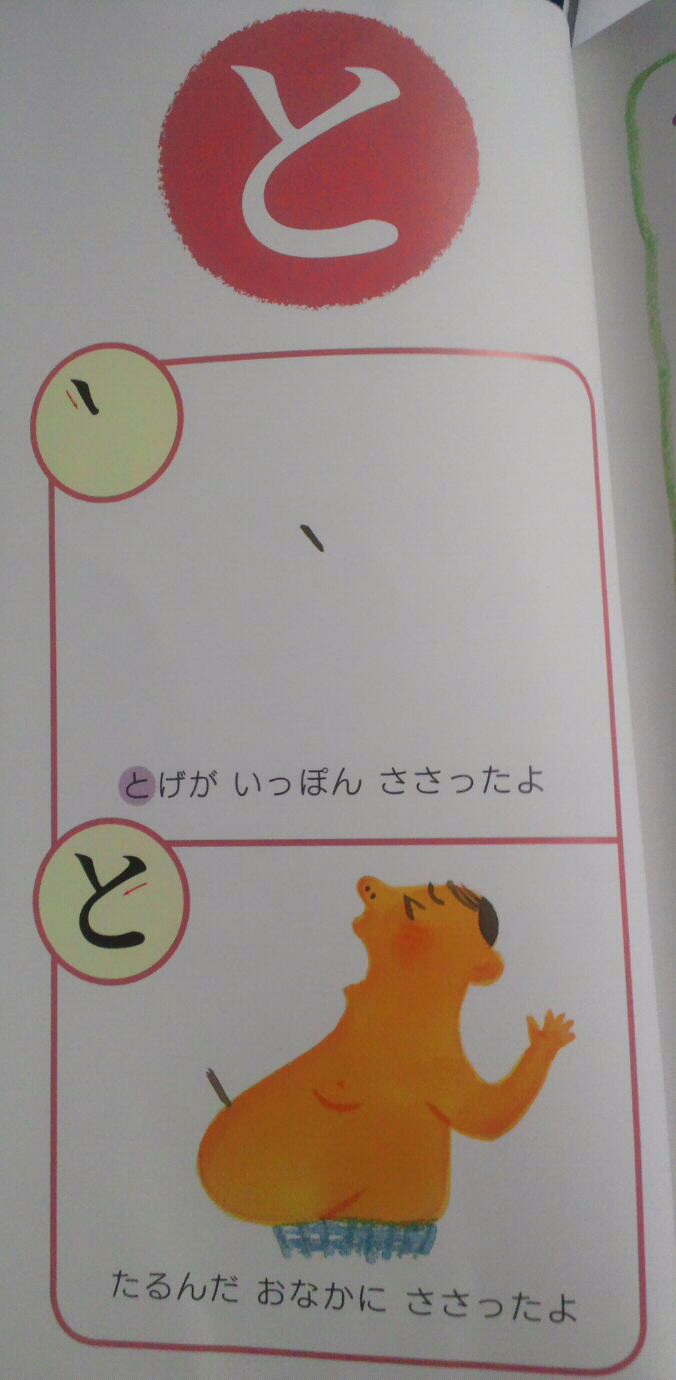 と
とげが いっぽん ささったよ
と
たるんだ おなかに ささったよ